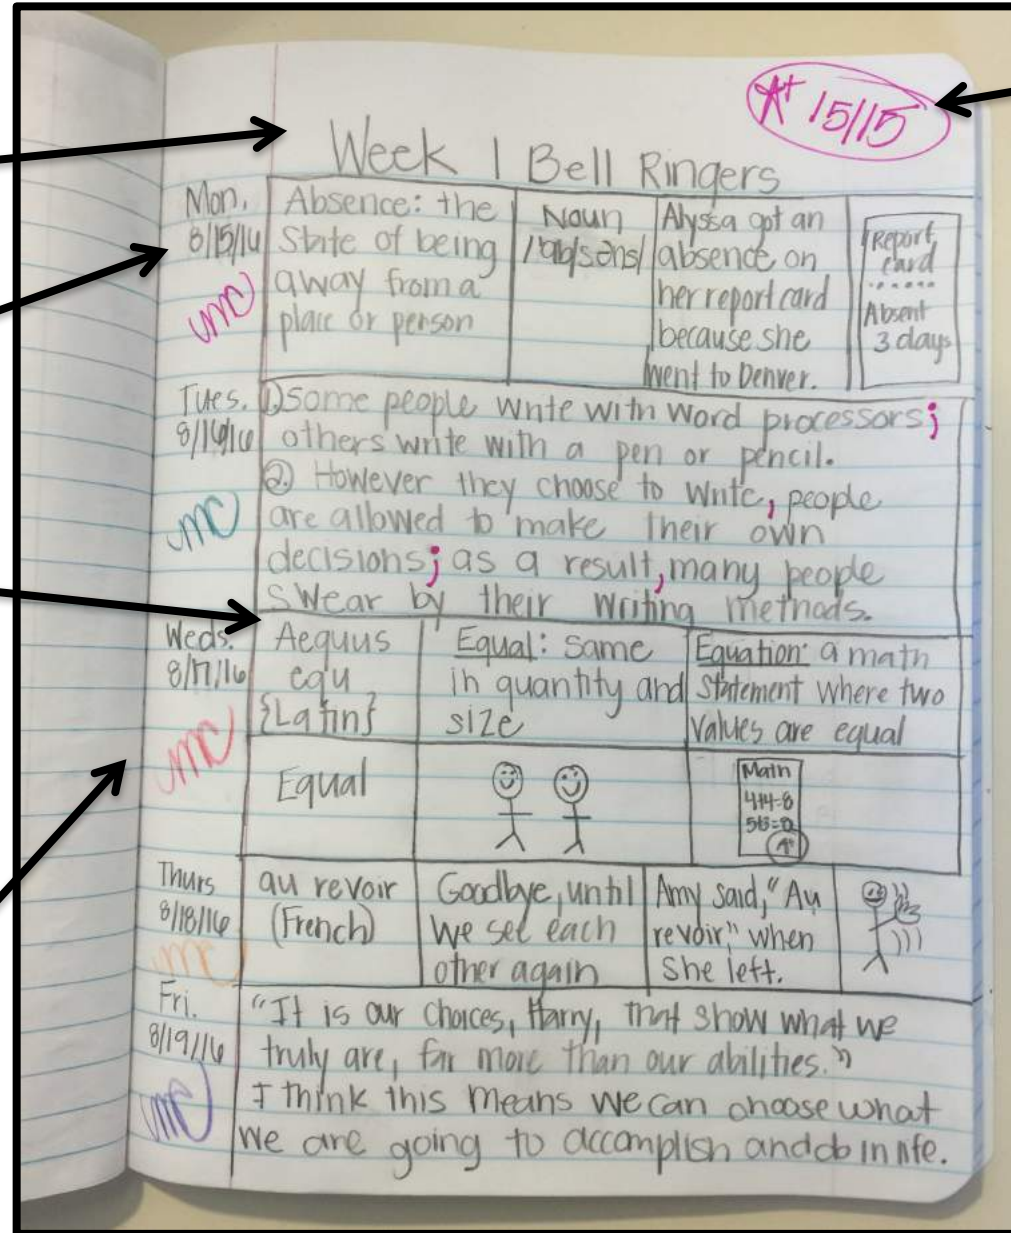 A+ 15/15
Week 1 Bell Ringers
Mon.
8/15/16
mc
Absence: the
State of being
away from a
place or person
Noun
/'ab/səns/
Alyssa got an
absence on
her report card
because she
went to Denver.
Report
card
Absent
3 days
Tues.
8/16/16
mc
1) Some people write with word processors;
others write with a pen or pencil.
2. However they choose to write, people
are allowed to make their own
decisions; as a result, many people
swear by their writing methods.
Weds.
8/17/16
mc
Aequus
equ
{Latin}
Equal: same
in quantity and
size
Equation: a math
statement where two
values are equal
Equal
Math
4+4=8
A+
Thurs
8/18/16
mc
au revoir
(French)
Goodbye, until
we see each
other again
Amy said, "Au
revoir," when
she left.
Fri.
8/19/16
mc
"It is our choices, Harry, that show what we
truly are, far more than our abilities."
I think this means we can choose what
we are going to accomplish and do in life.